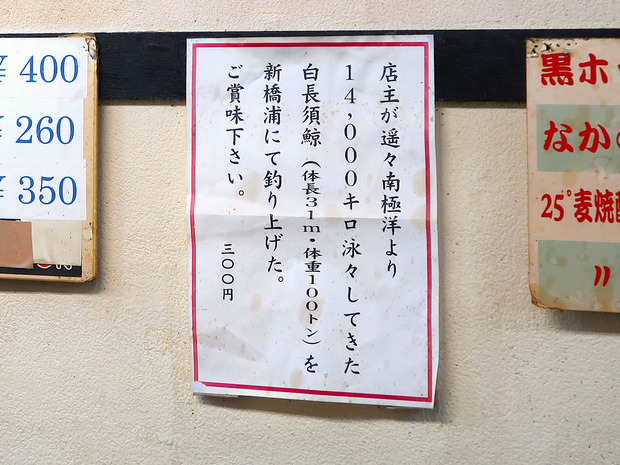 黒ホ
なか
25°麦焼酎
〃
店主が遥々南極洋より
14,000キロ泳々してきた
白長須鯨（体長31m・体重100トン）を
新橋浦にて釣り上げた。
ご賞味下さい。
三〇〇円
¥ 400
¥ 260
¥ 350